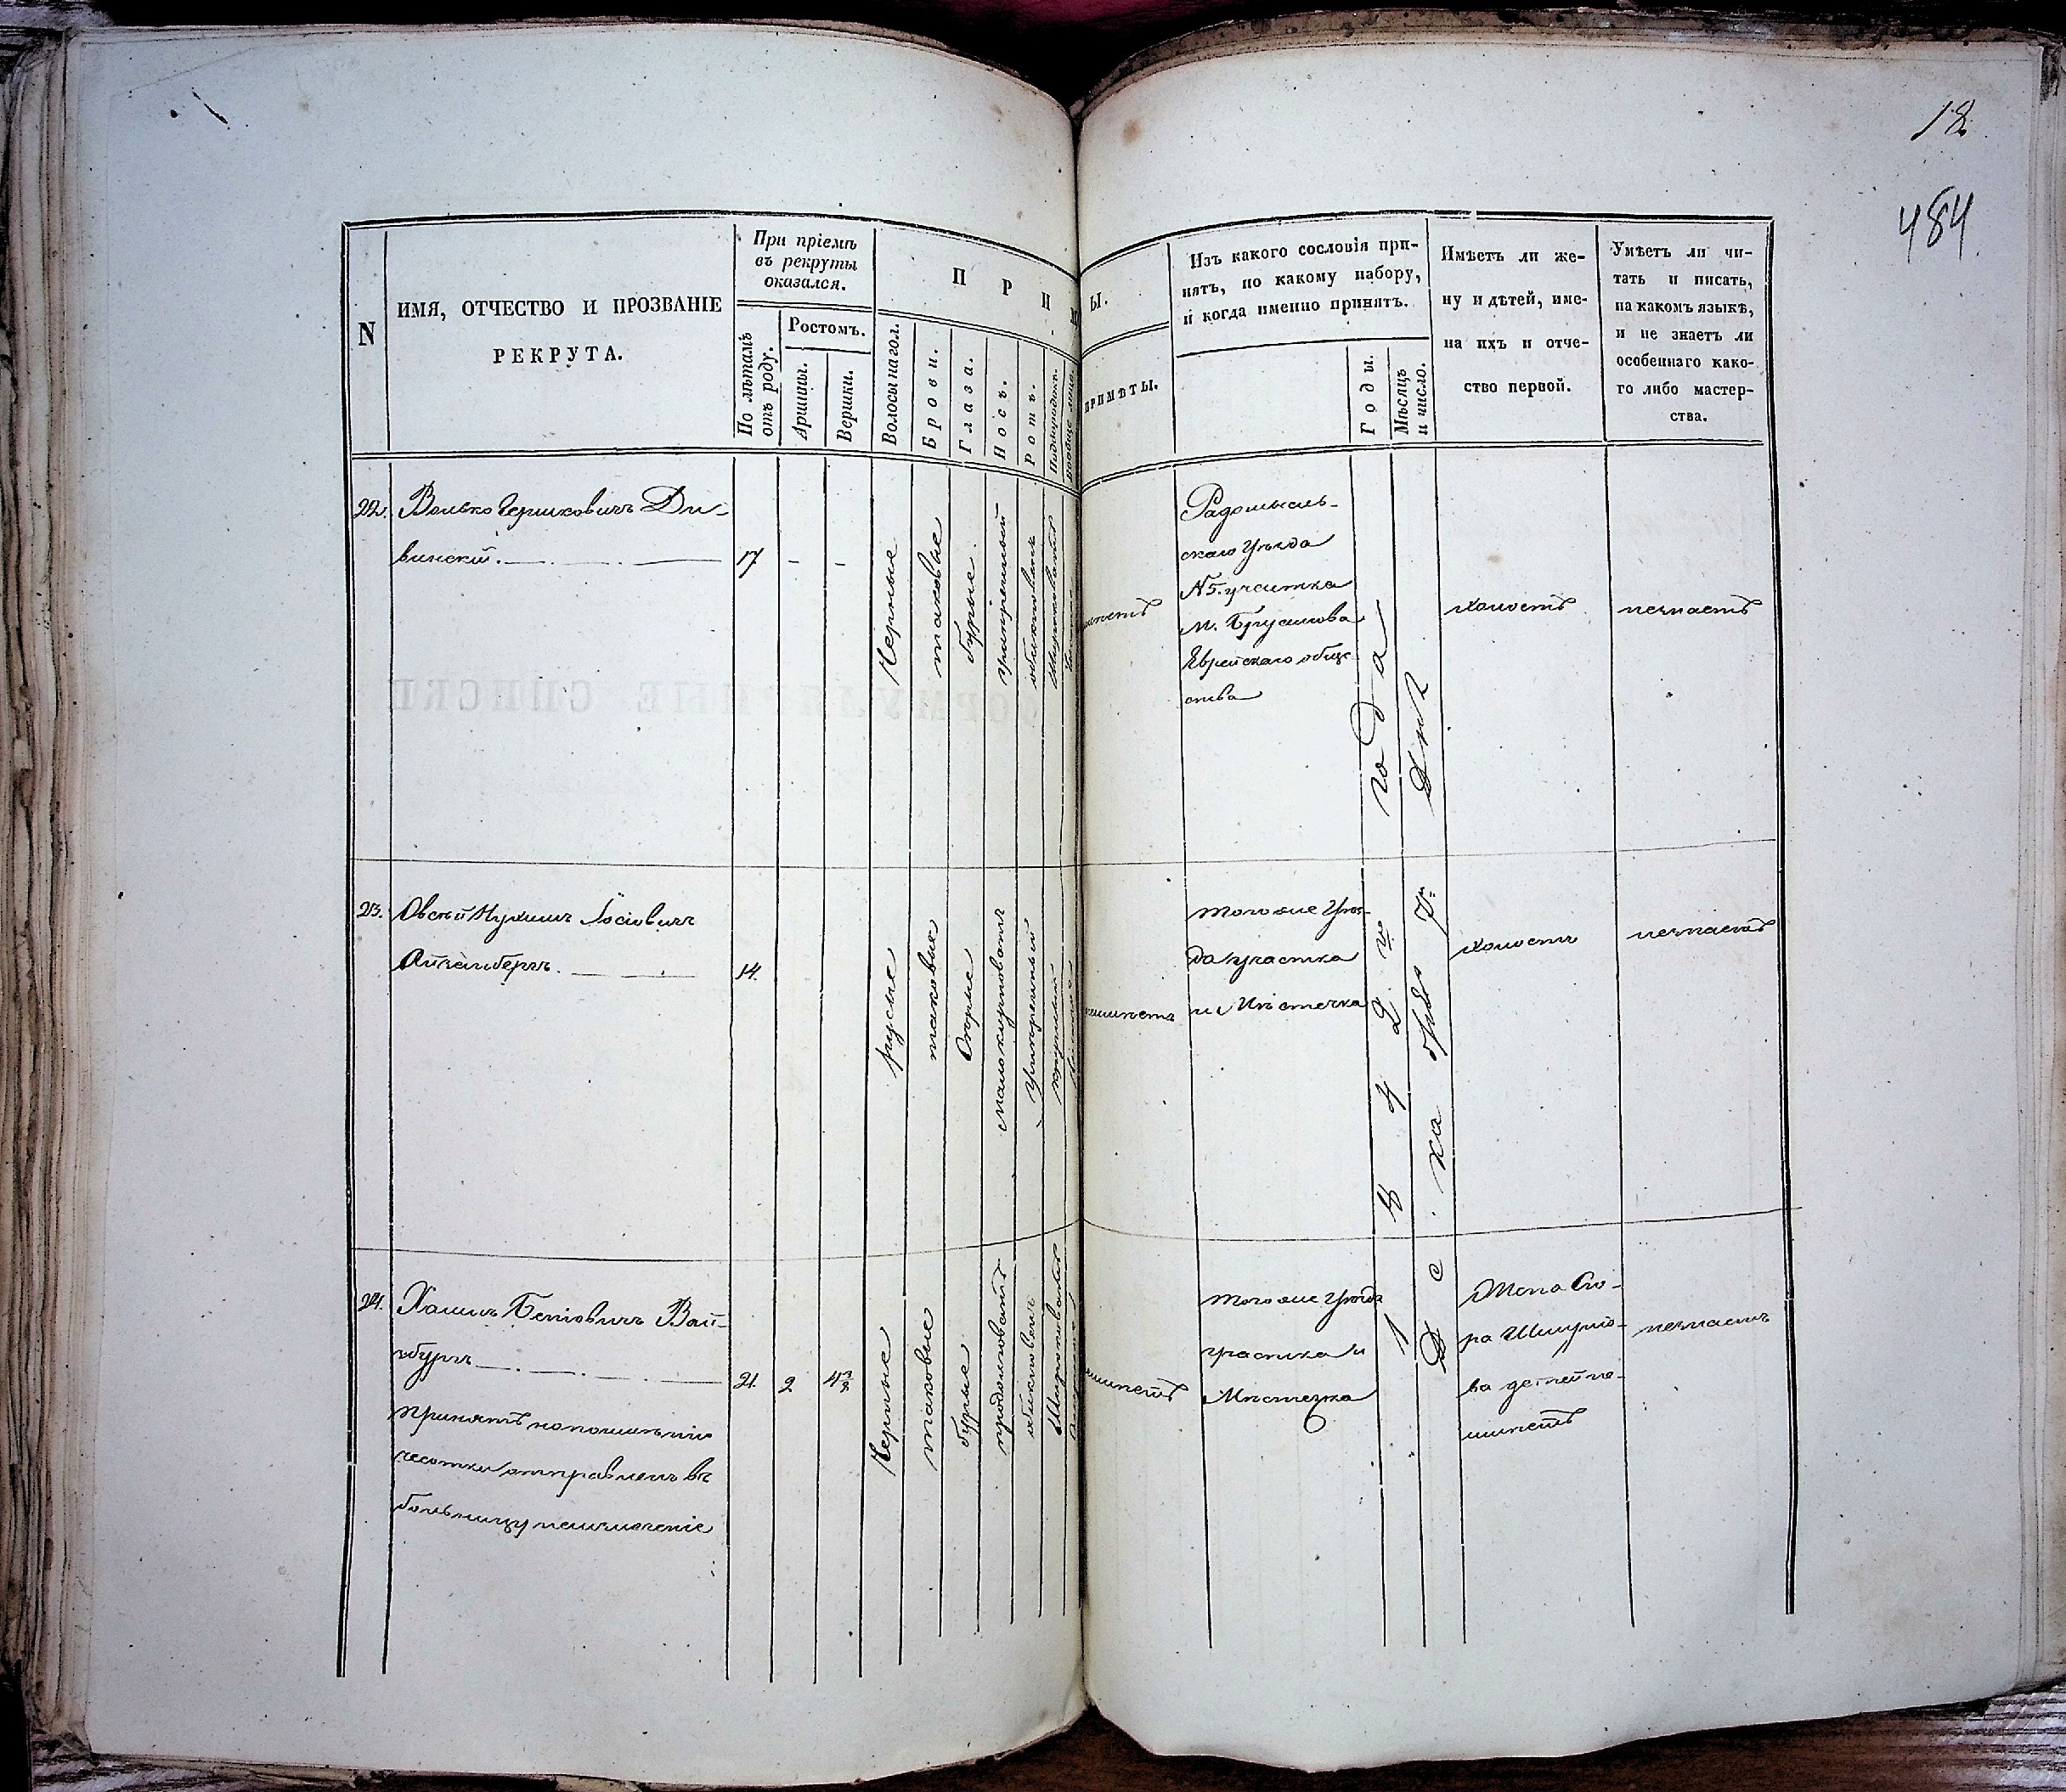 18.
484
N
ИМЯ, ОТЧЕСТВО И ПРОЗВАНІЕ
РЕКРУТА.
При пріемѣ
въ рекруты
оказался.
По лѣтамъ
отъ роду.
Ростомъ.
Аршины.
Вершки.
П Р И М
Волосы на гол.
Брови.
Глаза.
Носъ.
Ротъ.
Подбородокъ.
вообще лицо.
Ы.
ПРИМѢТЫ.
Изъ какого сословія при-
нятъ, по какому набору,
и когда именно принятъ.
Годы.
Мѣсяцъ
и число.
Имѣетъ ли же-
ну и дѣтей, име-
на ихъ и отче-
ство первой.
Умѣетъ ли чи-
тать и писать,
на какомъ языкѣ,
и не знаетъ ли
особеннаго како-
го либо мастер-
ства.
22.
Волько Гершковичъ Ди-
винскій.
17
-
-
Черные
таковые
бурые
умѣренный
обыкновенъ
Радомысль-
скаго Уѣзда
№5. участка
м. Брусилова
Еврейскаго обще-
ства
холостъ
незнаетъ
23.
Овсѣй Нухимъ Іосіовичъ
Айзенбергъ.
14.
русые
таковые
умѣренный
того же Уѣз-
да участка
и Мѣстечка
холостъ
незнаетъ
24.
Хаимъ Беніовичъ Вай-
нбургъ
принятъ
чесотки отправленъ въ
больницу
21.
2
4 3/8
Черные
таковые
бурые
продолговатъ
обыкновенъ
неимѣетъ
того же Уѣзда
участка и
Мѣстечка
Жена Сю-
ра Шмуліо-
ва детей не-
имѣетъ
незнаетъ
1842го года
Декабря 7го дня